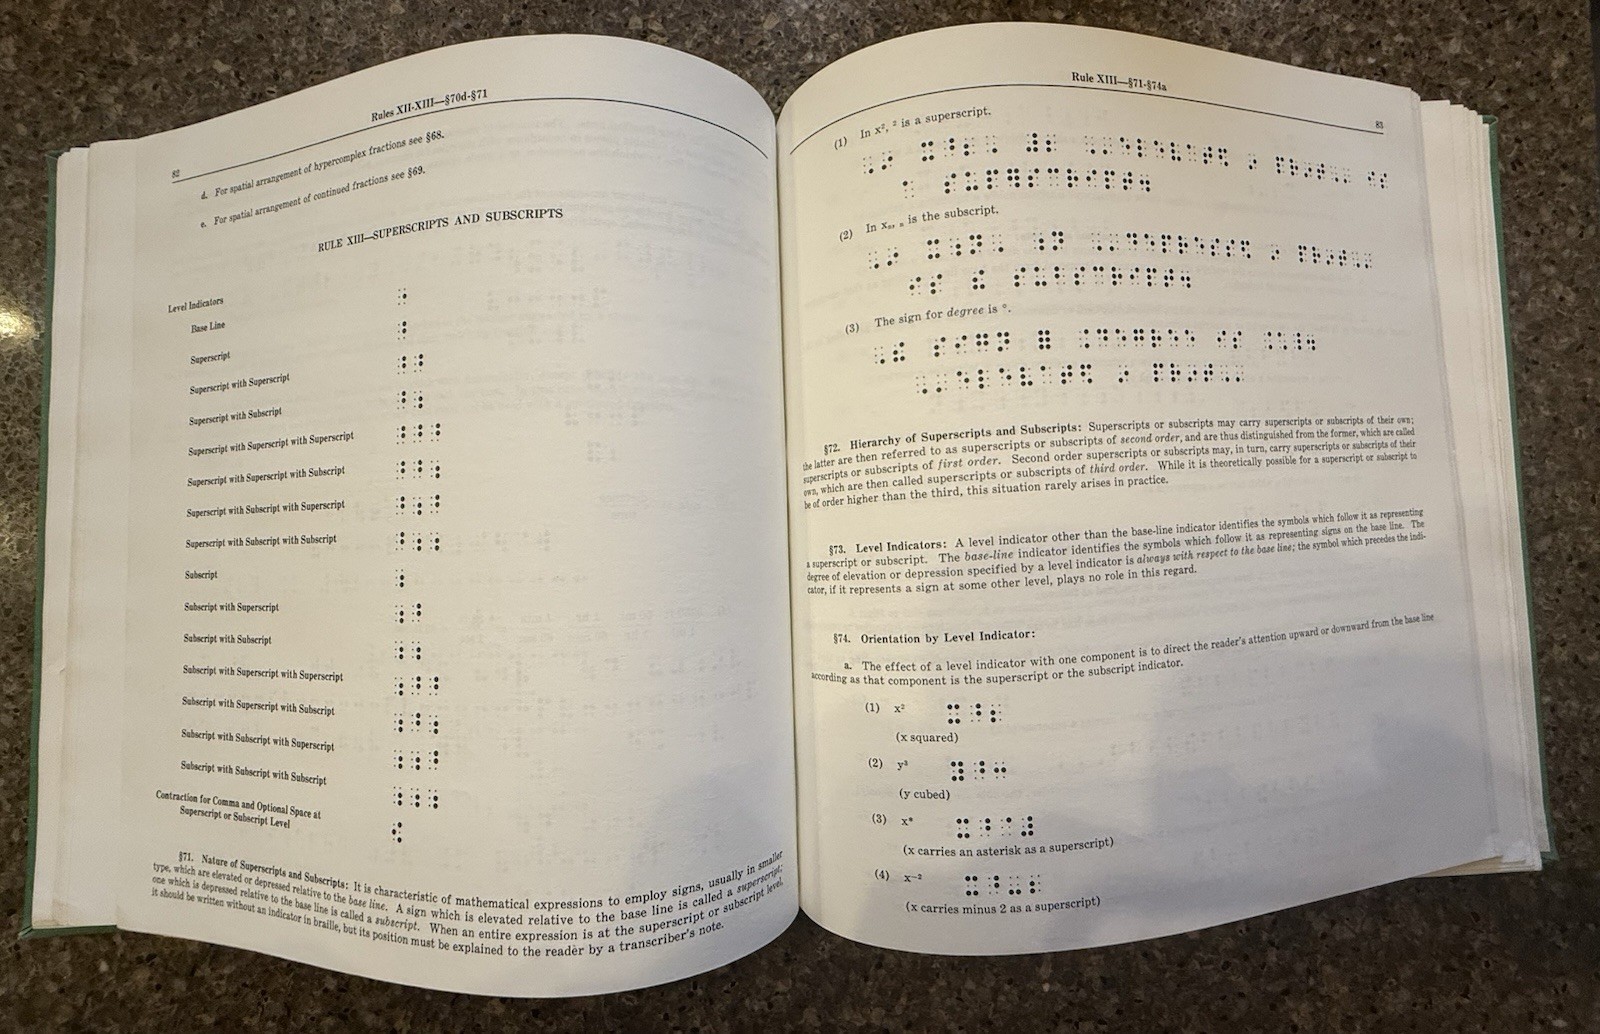 Rules XII-XIII—§70d-§71
82
d. For spatial arrangement of hypercomplex fractions see §68.
e. For spatial arrangement of continued fractions see §69.
RULE XIII—SUPERSCRIPTS AND SUBSCRIPTS
Level Indicators
Base Line
Superscript
Superscript with Superscript
Superscript with Subscript
Superscript with Superscript with Superscript
Superscript with Superscript with Subscript
Superscript with Subscript with Superscript
Superscript with Subscript with Subscript
Subscript
Subscript with Superscript
Subscript with Subscript
Subscript with Superscript with Superscript
Subscript with Superscript with Subscript
Subscript with Subscript with Superscript
Subscript with Subscript with Subscript
Contraction for Comma and Optional Space at
Superscript or Subscript Level
§71. Nature of Superscripts and Subscripts: It is characteristic of mathematical expressions to employ signs, usually in smaller
type, which are elevated or depressed relative to the base line. A sign which is elevated relative to the base line is called a superscript;
one which is depressed relative to the base line is called a subscript. When an entire expression is at the superscript or subscript level,
it should be written without an indicator in braille, but its position must be explained to the reader by a transcriber's note.
Rule XIII—§71-§74a
83
(1) In x², ² is a superscript.
(2) In xₙ, ₙ is the subscript.
(3) The sign for degree is °.
§72. Hierarchy of Superscripts and Subscripts: Superscripts or subscripts may carry superscripts or subscripts of their own;
the latter are then referred to as superscripts or subscripts of second order, and are thus distinguished from the former, which are called
superscripts or subscripts of first order. Second order superscripts or subscripts may, in turn, carry superscripts or subscripts of their
own, which are then called superscripts or subscripts of third order. While it is theoretically possible for a superscript or subscript to
be of order higher than the third, this situation rarely arises in practice.
§73. Level Indicators: A level indicator other than the base-line indicator identifies the symbols which follow it as representing
a superscript or subscript. The base-line indicator identifies the symbols which follow it as representing signs on the base line. The
degree of elevation or depression specified by a level indicator is always with respect to the base line; the symbol which precedes the indi-
cator, if it represents a sign at some other level, plays no role in this regard.
§74. Orientation by Level Indicator:
a. The effect of a level indicator with one component is to direct the reader's attention upward or downward from the base line
according as that component is the superscript or the subscript indicator.
(1) x²
(x squared)
(2) y³
(y cubed)
(3) x*
(x carries an asterisk as a superscript)
(4) x⁻²
(x carries minus 2 as a superscript)